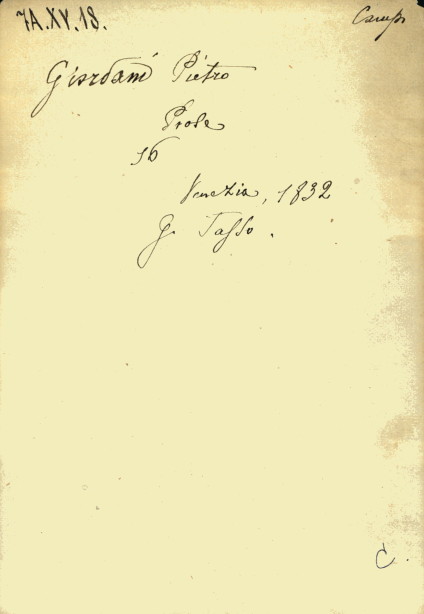 7A.XV.18.
Giordani Pietro
Prose
16
Venezia, 1832
G. Tasso.
C.